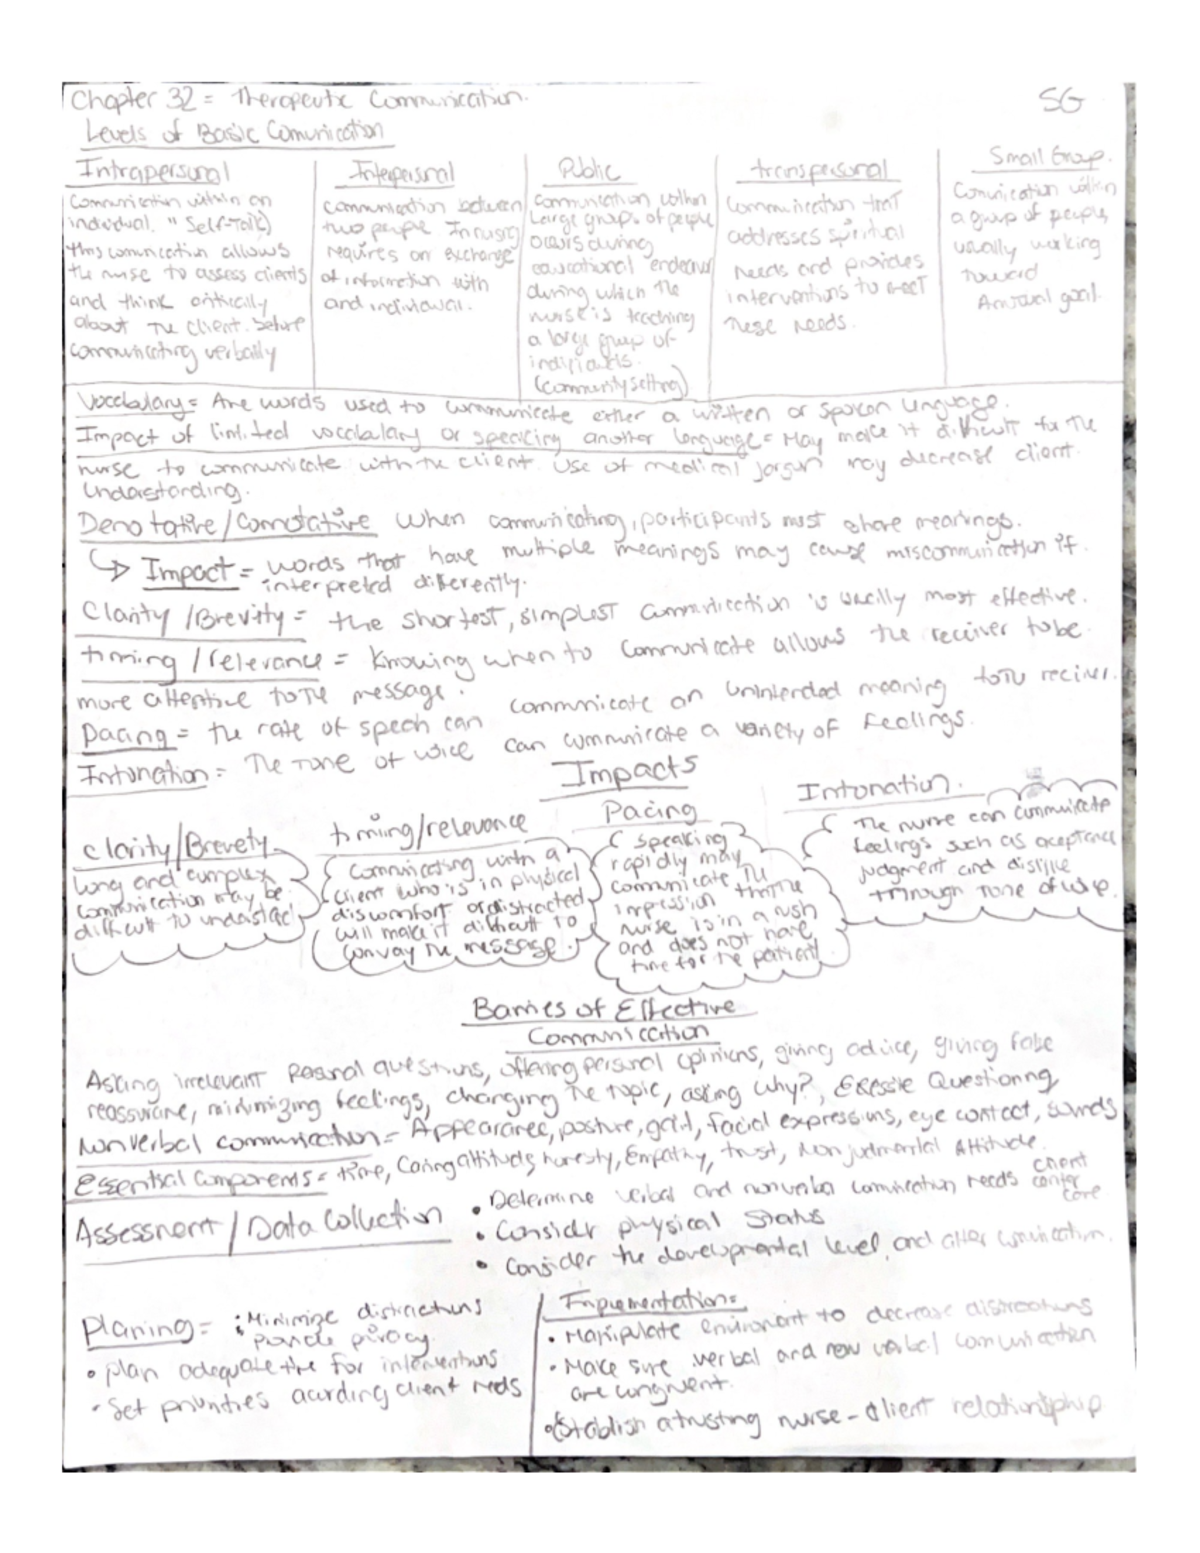 Chapter 32 = Therapeutic Communication.
SG
Levels of Basic Comunication
Intrapersonal
Communication within an
individual. "Self-Talk)
this comunication allows
the nurse to assess clients
and think critically
about the client. before
communicating verbally
Interpersonal
communication between
two people In nursing
requires an exchange
of information with
and individual.
Public
communication within
large groups of people
occurs during
educational endeavor
during which the
nurse is teaching
a large group of
individuals.
(community setting)
transpersonal
Communication that
addresses spiritual
needs and provides
interventions to meet
these needs.
Small Group.
Comunication within
a group of people,
usually working
toward
A mutual goal.
Vocabulary = Are words used to communicate either a written or spoken language.
Impact of limited vocabulary or speaking another language = May make it difficult for the
nurse to communicate with the client. Use of medical jargun may decrease client
Understanding.
Denotative/Connotative When communicating, participants must share meanings.
Impact = words that have multiple meanings may cause miscommunication if
interpreted differently.
Clarity/Brevity = the shortest, simplest communication is usually most effective.
timing/relevance = Knowing when to communicate allows the receiver to be
more attentive to the message.
Pacing = the rate of speech can communicate an unintended meaning to the reciver.
Intonation = The tone of voice can communicate a variety of Feelings.
Impacts
clarity/Brevety
long and complex
communication may be
difficult to understand
timing/relevance
Communicating with a
client who is in physical
discomfort or distracted
will make it difficult to
convay the message.
Pacing
speaking
rapidly may
communicate the
impression that the
nurse is in a rush
and does not have
time for the patient
Intonation.
The nurse can communicate
feelings such as aceptance
judgment and dislike
through tone of voice.
Barries of Effective
Communication
Asking irrelevant personal questions, offering personal opinions, giving advice, giving false
reassurane, minimizing feelings, changing the topic, asking why?, Exessie Questioning
Nonverbal communication = Appearance, posture, gait, facial expressions, eye contact, sounds
Essential Components = time, Caring attitude, honesty, Empathy, trust, Non judmental Attitude.
Assessment/Data Collection
• Determine verbal and nonverbal comunication needs client
care
• Consider physical status
• Consider the developmental level, and alter comunication.
Planing = • Minimize distractions
provide privacy.
• plan adequate time for interventions
• Set priorities acurding client needs
Implementation =
• Manipulate environment to decrease distractions
• Make sure verbal and non verbal comunication
are congruent.
• Establish a trusting nurse-client relationship